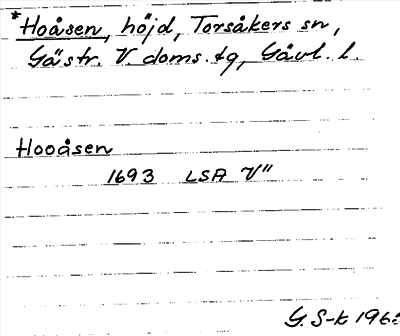 *Hoåsen, höjd, Torsåkers sn,
Gästr. V. doms. tg, Gävl. l.
Hooåsen
1693 LSA V"
G. S-k